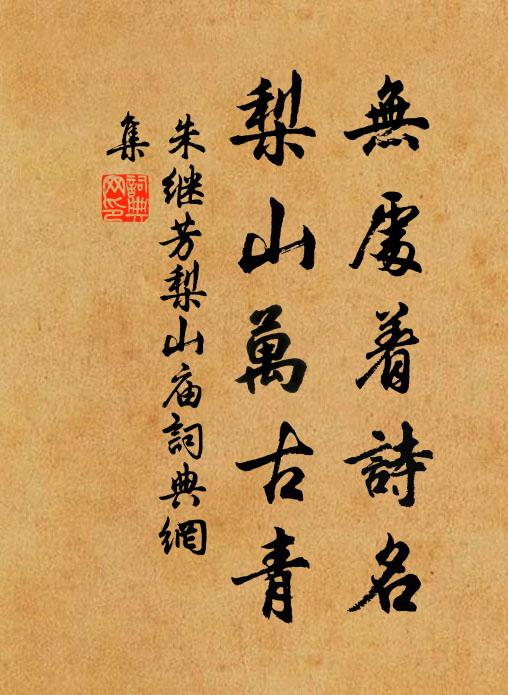 無處着詩名
梨山萬古青
朱继芳梨山庙詞典網
集
詞典
网印